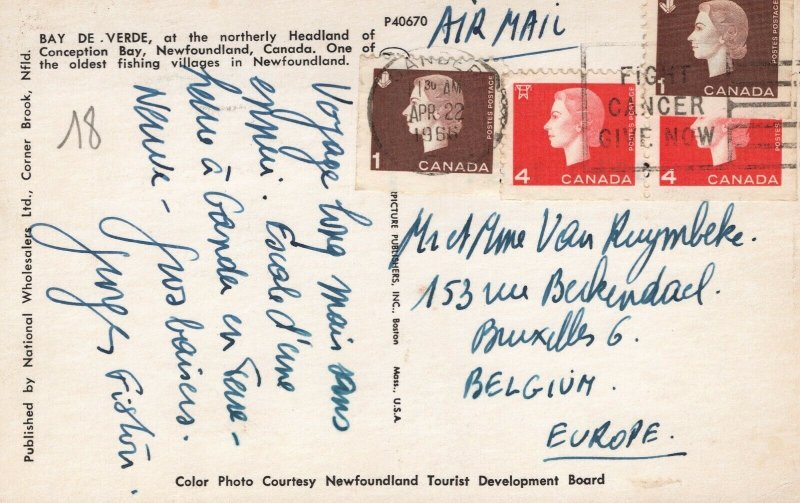 BAY DE VERDE, at the northerly Headland of
Conception Bay, Newfoundland, Canada. One of
the oldest fishing villages in Newfoundland.
P40670
AIR MAIL
18
Voyage long mais sans
ennui. Escale d'une
heure à Gander en Terre-
Neuve - Gros baisers.
Fiston.
GANDER
1 30 AM
APR 22
1966
FIGHT
CANCER
GIVE NOW
1 CANADA
POSTES POSTAGE
4 CANADA
POSTES POSTAGE
1 CANADA
POSTES POSTAGE
4 CANADA
Mr et Mme Van Ruymbeke.
153 rue Berkendael.
Bruxelles 6.
BELGIUM.
EUROPE.
Published by National Wholesalers Ltd., Corner Brook, Nfld.
PICTURE PUBLISHERS, INC., Boston Mass., U.S.A
Color Photo Courtesy Newfoundland Tourist Development Board